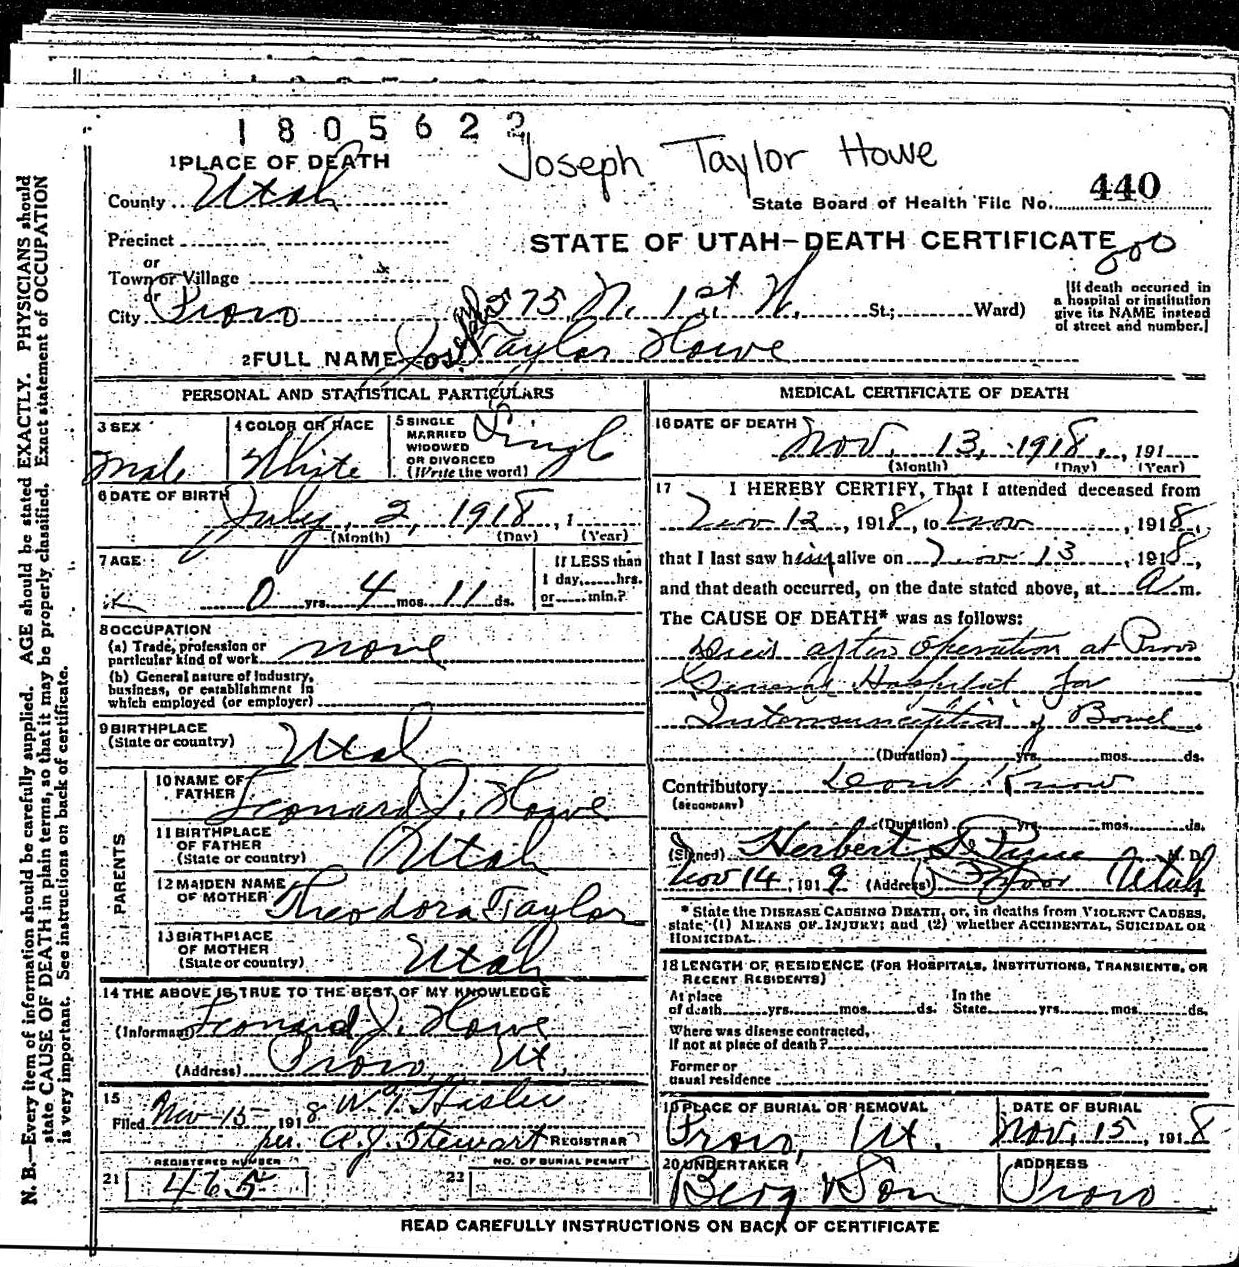 1805622
Joseph Taylor Howe
1 PLACE OF DEATH
County Utah
State Board of Health File No. 440
Precinct
STATE OF UTAH—DEATH CERTIFICATE
or
Town or Village
or
City Provo 75 N. 1st W. St.; Ward)
[If death occurred in
a hospital or institution
give its NAME instead
of street and number.]
2 FULL NAME Joseph Taylor Howe
PERSONAL AND STATISTICAL PARTICULARS
3 SEX
Male
4 COLOR OR RACE
White
5 SINGLE
MARRIED
WIDOWED
OR DIVORCED
(Write the word)
Single
6 DATE OF BIRTH
July, 2, 1918, 1
(Month) (Day) (Year)
7 AGE
0 yrs. 4 mos. 11 ds.
If LESS than
1 day, hrs.
or min.?
8 OCCUPATION
(a) Trade, profession or
particular kind of work none
(b) General nature of Industry,
business, or establishment in
which employed (or employer)
9 BIRTHPLACE
(State or country) Utah
PARENTS
10 NAME OF
FATHER Leonard J. Howe
11 BIRTHPLACE
OF FATHER
(State or country) Utah
12 MAIDEN NAME
OF MOTHER Theodora Taylor
13 BIRTHPLACE
OF MOTHER
(State or country) Utah
14 THE ABOVE IS TRUE TO THE BEST OF MY KNOWLEDGE
(Informant) Leonard J. Howe
(Address) Provo, Ut.
15
Filed Nov-15- 1918 W. T. Hasler
per. A. J. Stewart REGISTRAR
REGISTERED NUMBER
21 465
NO. OF BURIAL PERMIT
22
MEDICAL CERTIFICATE OF DEATH
16 DATE OF DEATH Nov. 13, 1918, 191
(Month) (Day) (Year)
17 I HEREBY CERTIFY, That I attended deceased from
Nov 12, 1918, to Nov, 1918,
that I last saw him alive on Nov 13, 1918,
and that death occurred, on the date stated above, at a m.
The CAUSE OF DEATH* was as follows:
after Operation at Provo
General Hospital for
of Bowel
(Duration) yrs. mos. ds.
Contributory Dont Know
(SECONDARY)
(Duration) yrs. mos. ds.
(Signed) Herbert S Pyne M. D.
Nov 14, 1919 (Address) Provo Utah
* State the DISEASE CAUSING DEATH, or, in deaths from VIOLENT CAUSES,
state (1) MEANS OF INJURY; and (2) whether ACCIDENTAL, SUICIDAL OR
HOMICIDAL.
18 LENGTH OF RESIDENCE (FOR HOSPITALS, INSTITUTIONS, TRANSIENTS, OR
RECENT RESIDENTS)
At place
of death yrs. mos. ds.
In the
State yrs. mos. ds.
Where was disease contracted,
If not at place of death?
Former or
usual residence
19 PLACE OF BURIAL OR REMOVAL
Provo, Ut.
DATE OF BURIAL
Nov. 15, 1918
20 UNDERTAKER
Berg & Son
ADDRESS
Provo
READ CAREFULLY INSTRUCTIONS ON BACK OF CERTIFICATE
N. B.—Every item of information should be carefully supplied. AGE should be stated EXACTLY. PHYSICIANS should
state CAUSE OF DEATH in plain terms, so that it may be properly classified. Exact statement of OCCUPATION
is very important. See instructions on back of certificate.